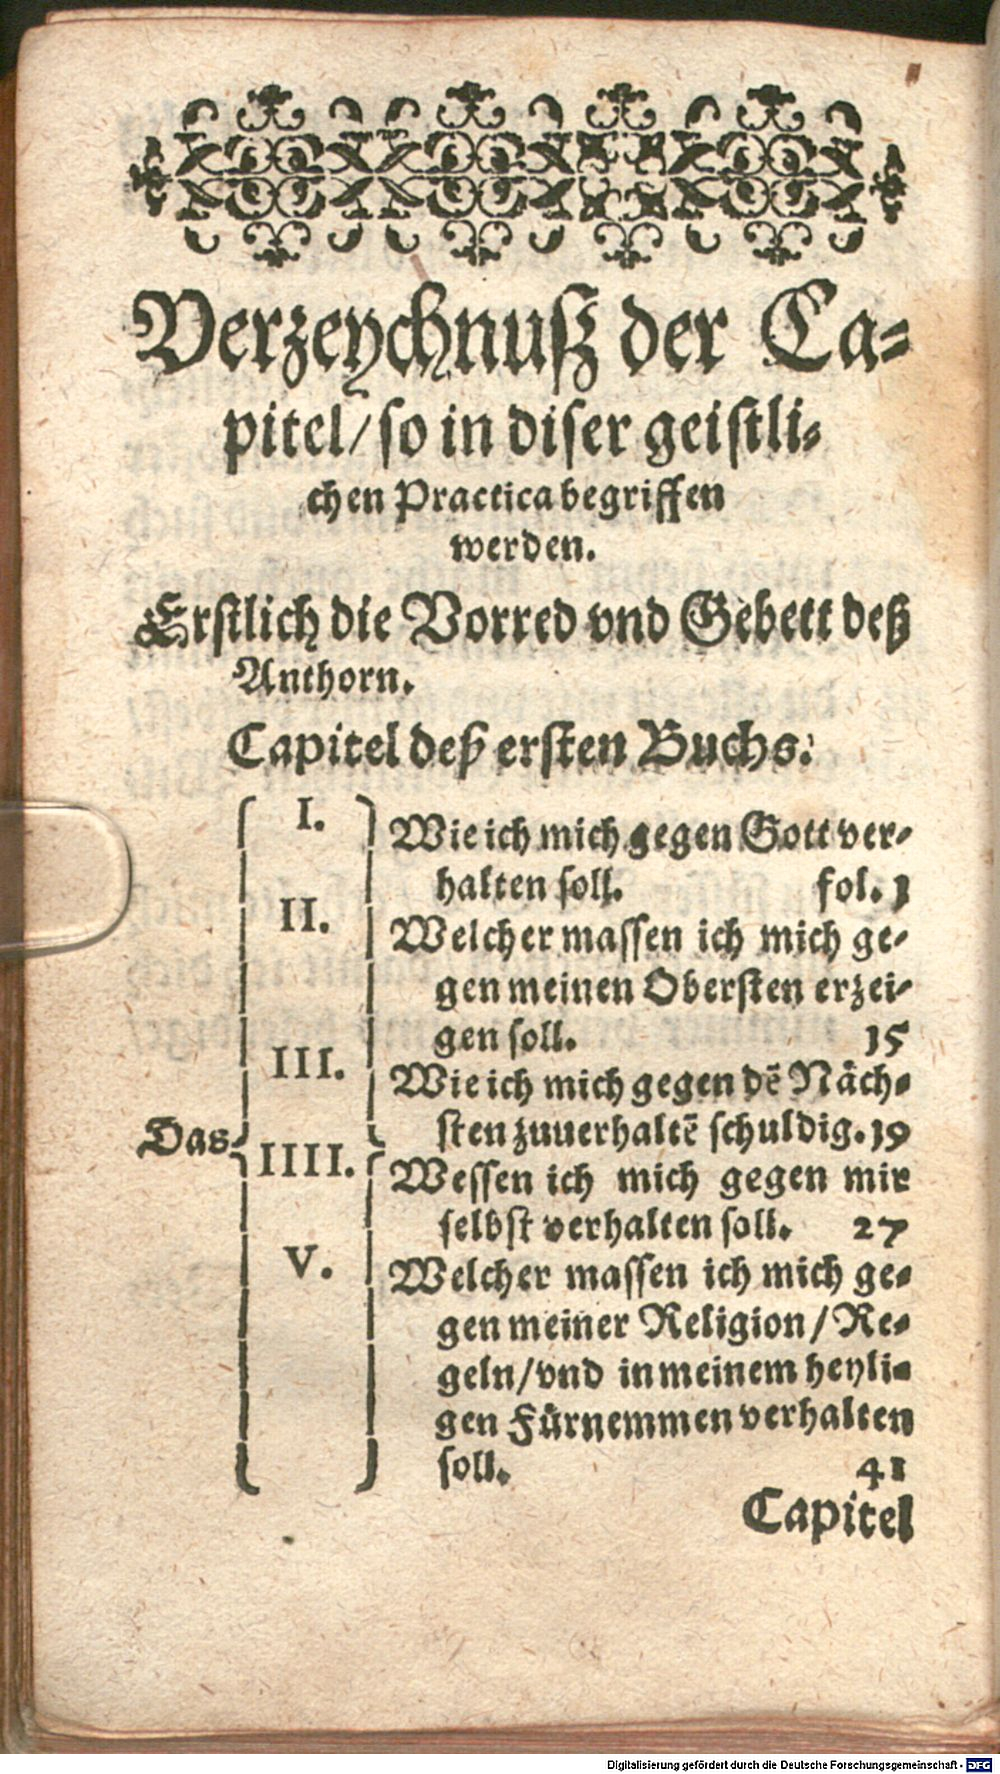 Verzeychnuß der Ca-
pitel/ so in diser geistli-
chen Practica begriffen
werden.
Erstlich die Vorred vnd Gebett deß
Anthorn.
Capitel deß ersten Buchs.
Das
I. Wie ich mich gegen Gott ver-
halten soll. fol. 1
II. Welcher massen ich mich ge-
gen meinen Obersten erzei-
gen soll. 15
III. Wie ich mich gegen dē Nächſ-
sten zuuerhaltē schuldig. 19
IIII. Wessen ich mich gegen mir
selbst verhalten soll. 27
V. Welcher massen ich mich ge-
gen meiner Religion/ Re-
geln/ vnd in meinem heyli-
gen Fürnemmen verhalten
soll. 41
Capitel
Digitalisierung gefördert durch die Deutsche Forschungsgemeinschaft - DFG